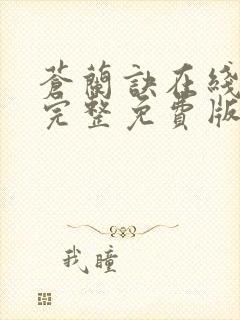 蒼蘭訣在綫
完整免費版
我瞳